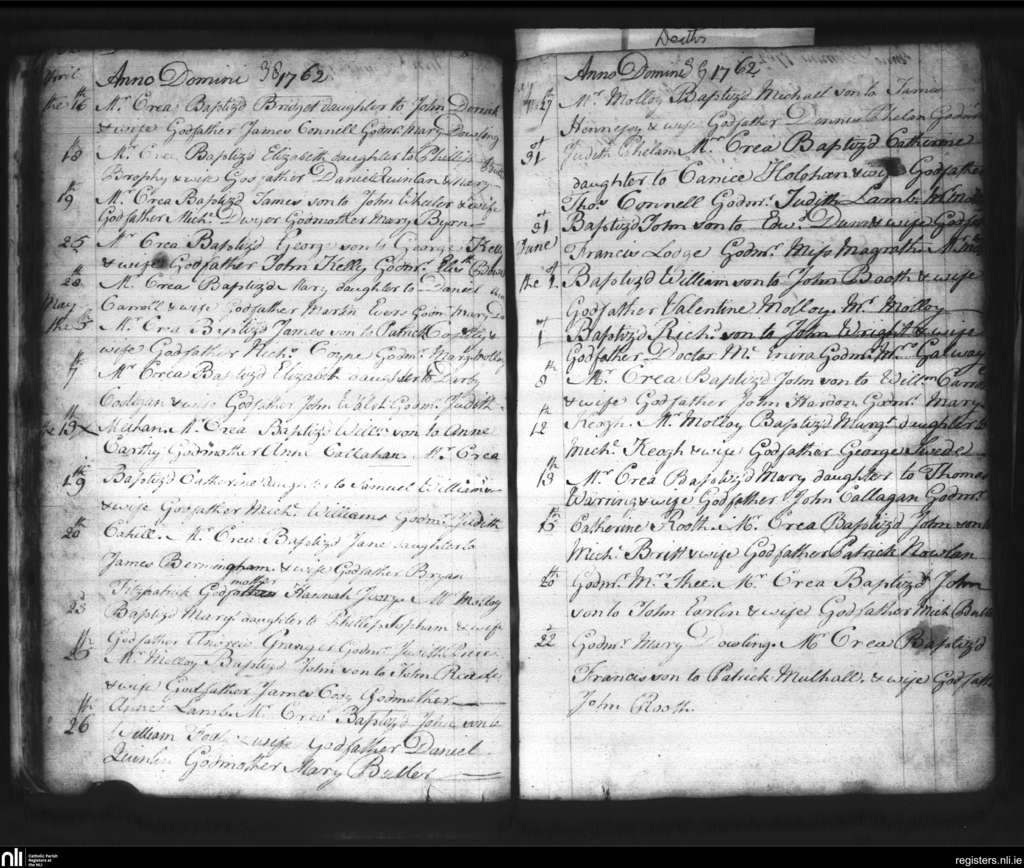 Deaths
Anno Domini 38 1762
April
the 16th Mr. Crea Baptiz'd Bridget daughter to John
& wife Godfather James Connell Godmr. Mary Dowling
18th Mr. Crea Baptiz'd Elizabeth daughter to Phillip
Brophy & wife Godfather Daniel Quinlan & Mary
19th Mr. Crea Baptiz'd James son to John Wheeler & wife
Godfather Mich: Dwyer Godmother Mary Byrn
25 Mr. Crea Baptiz'd George son to George Kelly
& wife Godfather John Kelly Godmr. Elizth
28th Mr. Crea Baptiz'd Mary daughter to Daniel
May
Carroll & wife Godfather Martin Evers Godmr Mary
the 5th Mr. Crea Baptiz'd James son to Patrick &
wife Godfather Nichs. Godmr. Mary
7th Mr. Crea Baptiz'd Elizabeth daughter to Darby
Costigan & wife Godfather John Walsh Godmr. Judith
the 13th Mr. Crea Baptiz'd Willm son to Anne
Carthy Godmother Anne Callahan. Mr. Crea
19th Baptiz'd Catherine daughter to Samuel Williams
& wife Godfather Michl. Williams Godmr. Judith
20th Cahill. Mr. Crea Baptiz'd Jane daughter to
James Bermingham & wife Godfather Bryan
Fitzpatrick Godmother Hannah Mr Molloy
23d Baptiz'd Mary daughter to Phillip & wife
Godfather Andrew Granger Godmr. Judith
25th Mr. Molloy Baptiz'd John son to John
& wife Godfather James Godmother
Anne Lamb. Mr Crea Baptiz'd John son to
26th William & wife Godfather Daniel
Quinlan Godmother Mary Butler
Anno Domini 39 1762
27th Mr. Molloy Baptiz'd Michael son to James
Hennessy & wife Godfather Dennis Phelan Godmr
Judith Phelan. Mr. Crea Baptiz'd Catherine
31st daughter to Canice Holohan & wife Godfather
Thos. Connell Godmr. Judith Lamb.
31st Baptiz'd John son to Edwd. Dunn & wife Godfathr
June
Francis Lodge Godmr. Miss Magrath
the 1st Baptiz'd William son to John Booth & wife
Godfather Valentine Molloy. Mr. Molloy
1st Baptiz'd Richd. son to John Wright & wife
Godfather Doctor Mc. Godmr. Mrs Galway
8th Mr. Crea Baptiz'd John son to Willm
& wife Godfather John Godmr. Mary
12th Keogh. Mr. Molloy Baptiz'd Margt. daughter to
Michl. Keogh & wife Godfather George
13th Mr. Crea Baptiz'd Mary daughter to Thomas
Warring & wife Godfather John Callagan Godmr.
15th Catherine Rooth. Mr. Crea Baptiz'd John son to
Michl. Britt & wife Godfather Patrick Nowlan
20th Godmr. Mrs. Shee. Mr. Crea Baptiz'd John
son to John & wife Godfather Mich
22d Godmr. Mary Dowling. Mr Crea Baptiz'd
Francis son to Patrick Mulhall & wife Godfathr
John Rooth.
nli
Catholic Parish
Registers at
the NLI
registers.nli.ie